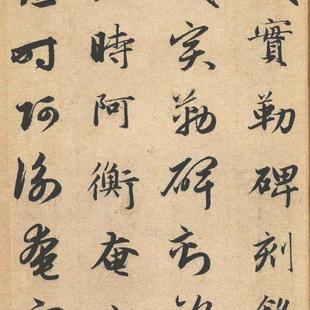 實勒碑刻
實勒碑刻
時阿衡奄
時阿衡奄